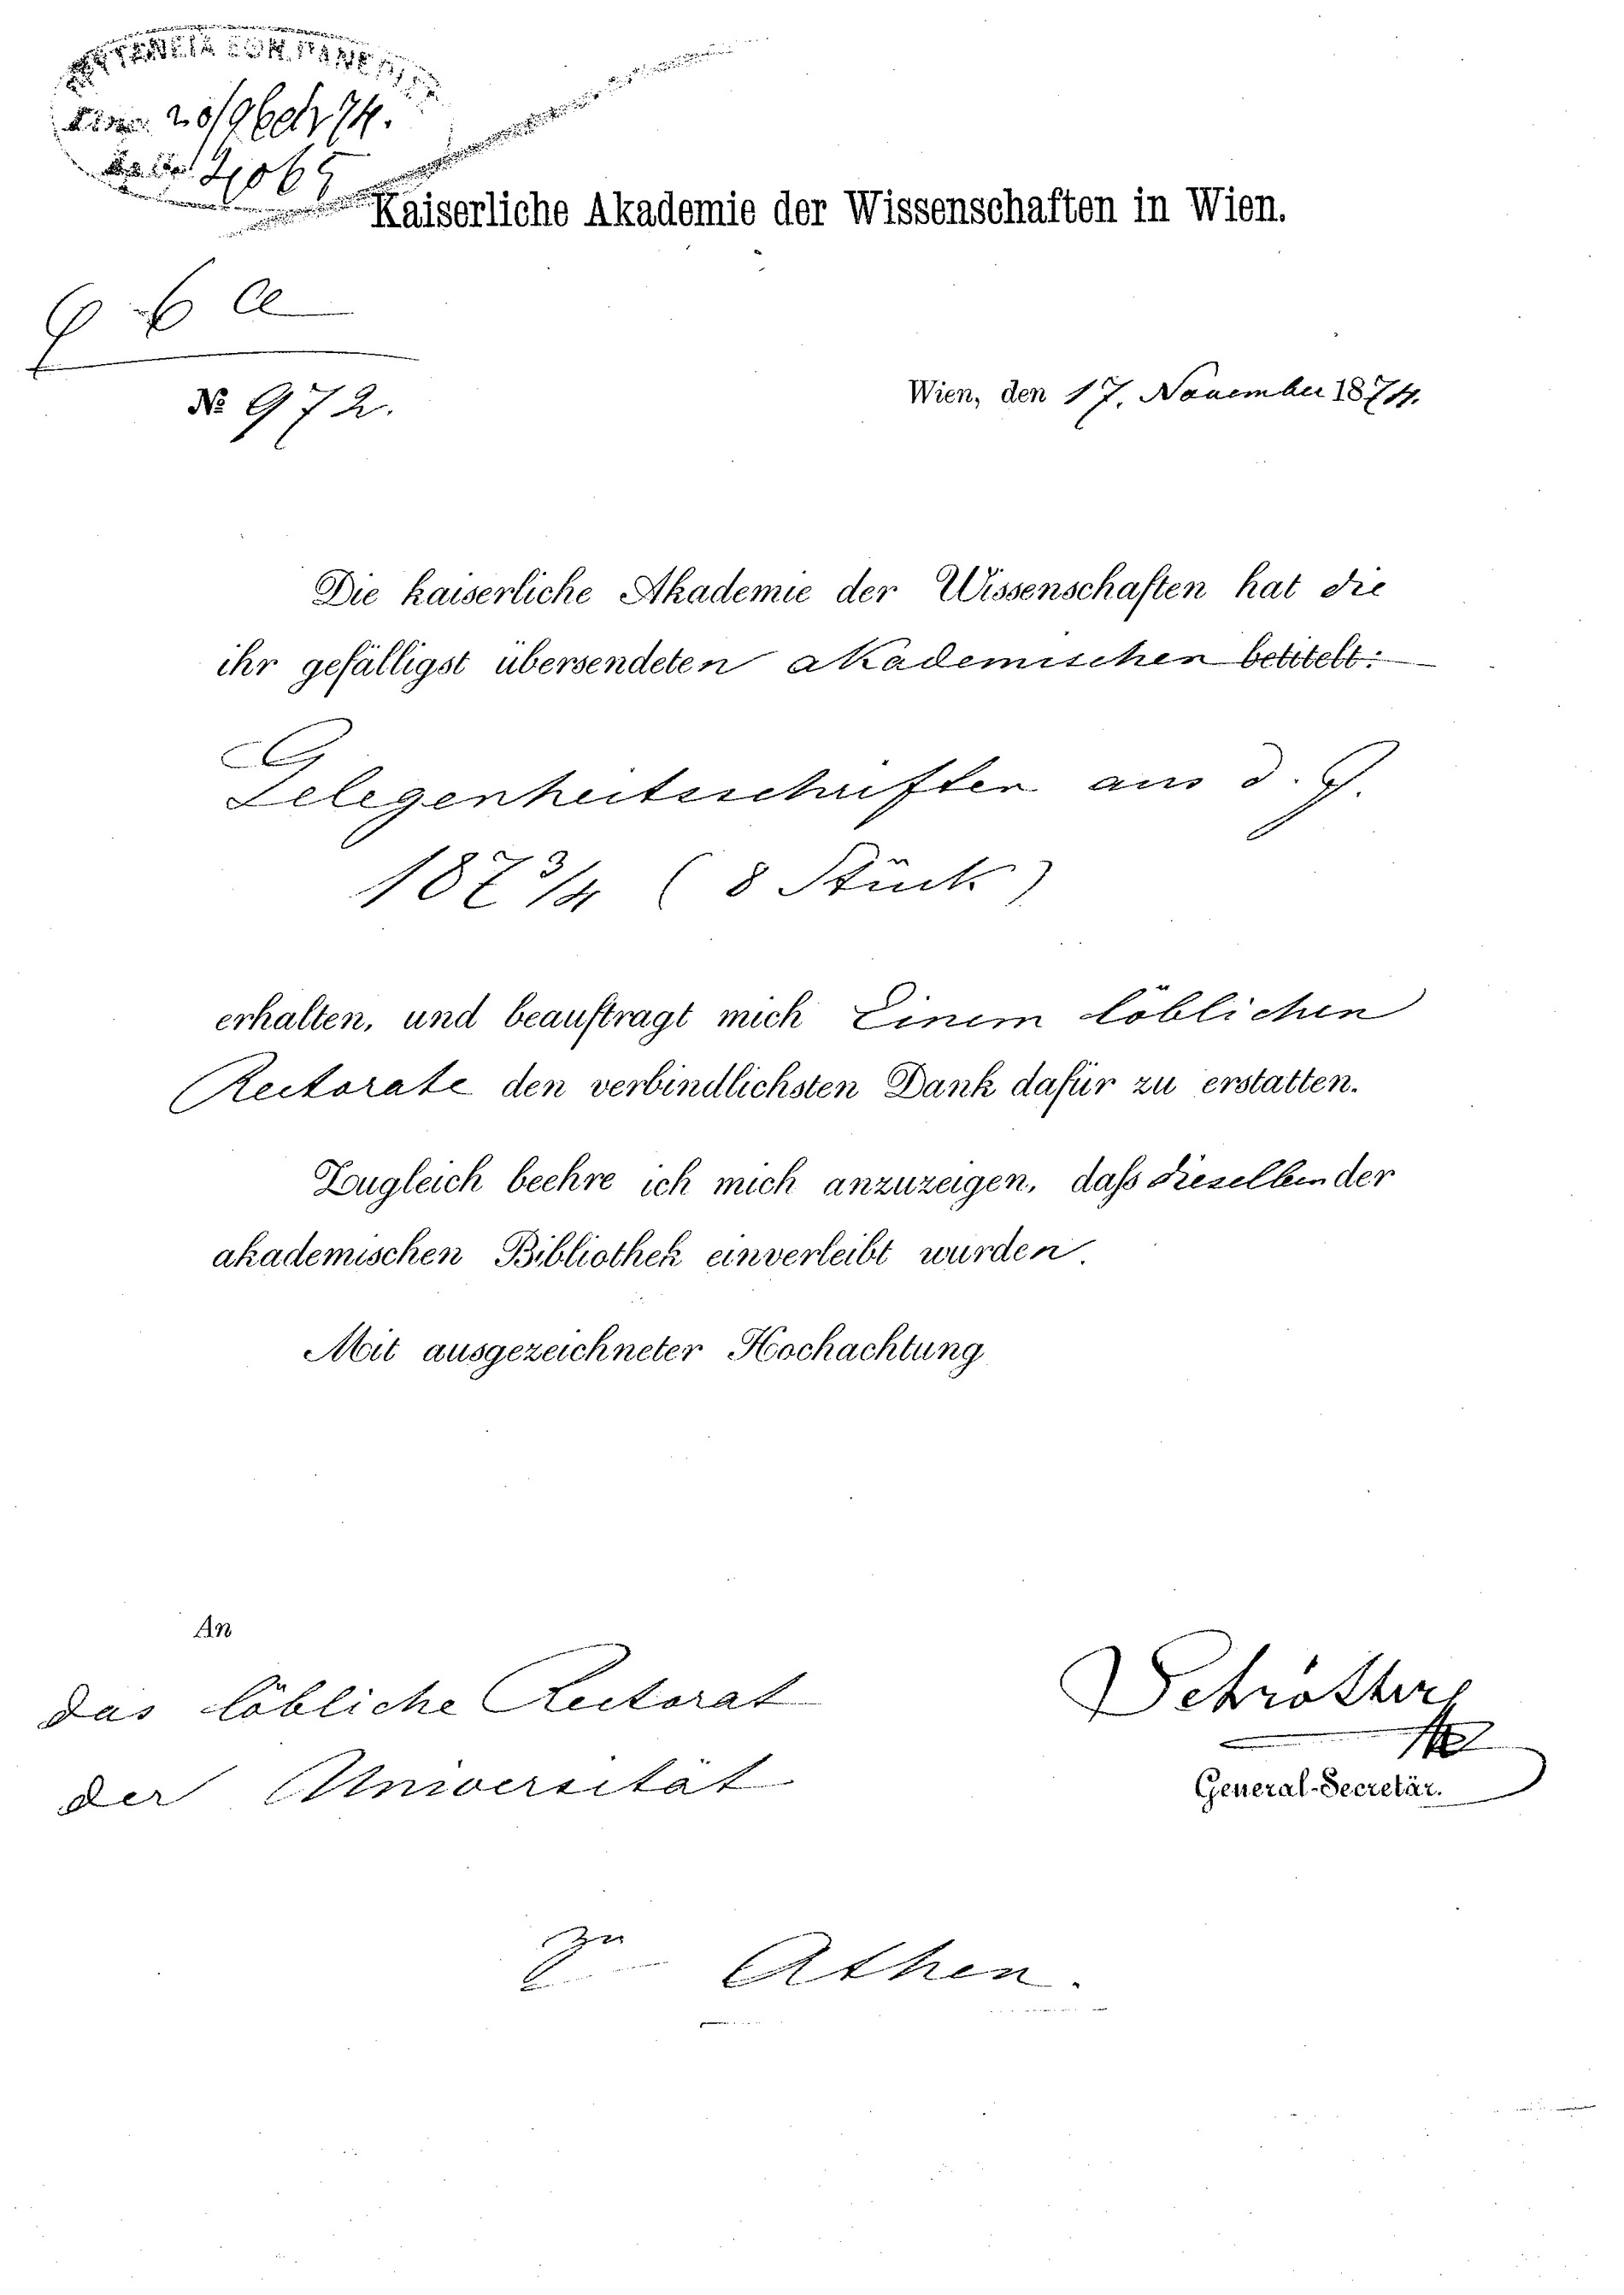 20/9br 74.
Kaiserliche Akademie der Wissenschaften in Wien.
№ 972.
Wien, den 17. November 1874.
Die kaiserliche Akademie der Wissenschaften hat die
ihr gefälligst übersendeten akademischen betitelt:
Gelegenheitsschriften aus d. J.
1873/4 (8 Stück)
erhalten, und beauftragt mich Einem löblichen
Rectorate den verbindlichsten Dank dafür zu erstatten.
Zugleich beehre ich mich anzuzeigen, daſs dieselben der
akademischen Bibliothek einverleibt wurden.
Mit ausgezeichneter Hochachtung
An
das löbliche Rectorat
der Universität
Schrötter
General-Secretär.
zu Athen.